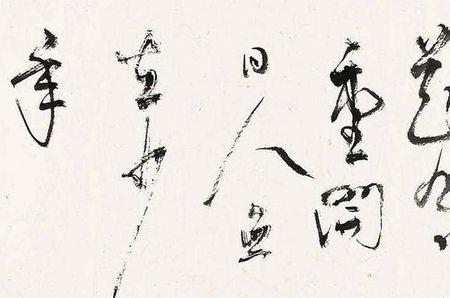 花有
重開
日人無
再少
年